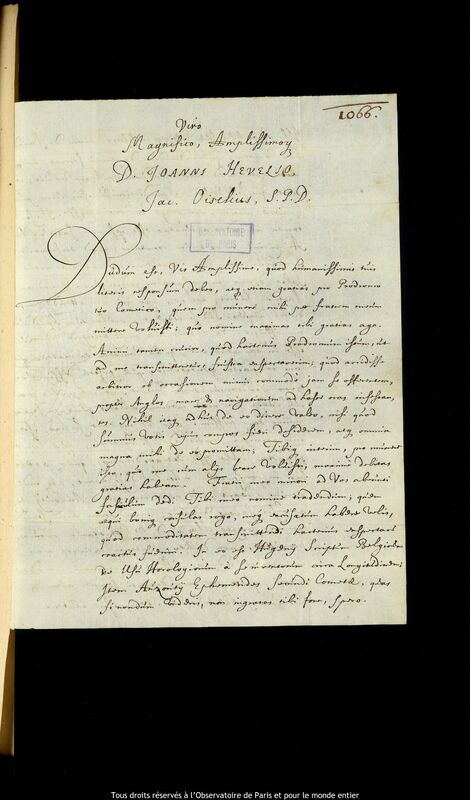 1066.
Viro
Magnifico, Amplissimoq
D. JOANNI HEVELIO,
Jac. Oiselius, S.P.D.
OBSERVATOIRE
DE PARIS
Dudum est, Vir Amplissime, quod humanissimis tuis
literis responsum debeo, atq etiam gratias pro Prodromo
tuo Cometico, quem pro munere mihi per fratrem meum
mittere voluisti; quo nomine maximas tibi gratias ago.
Animi tamen crucior, quod hactenus Prodromum istum, ut
ad me transmitteretur, frustra expectarim; quod accidisse
arbitror ob occasionem minus commode jam se offerentem,
propter Anglos, mare & navigationem ad hasce oras infestan-
tes. Nihil itaq adhuc de eo dicere valeo, nisi quod
summis votis ejus compos fieri desiderem, atq omnia
magna mihi de eo promittam; Tibiq interim, pro munere
isto, quo me cum aliis beare voluisti, maximè debitas
gratias habeam. Fratri meo minori ad Vos abeunti
fasciculum dedi Tibi meo nomine tradendum; quem
æqui boniq consulas rogo, meq excusatum habere velis,
quod commoditatem transmittendi hactenus expectare
coactus fuerim. In eo est Hugenij scriptum Belgicum
De Usu Horologiorum à se inventorum circa Longitudines;
Item Auzoutij Ephemerides secundi Cometæ, quas
si nondum videris, non ingratas tibi fore, spero.
Tous droits réservés à l'Observatoire de Paris et pour le monde entier